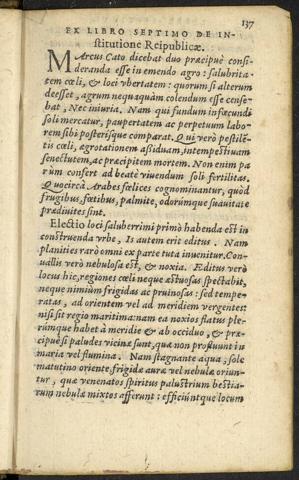 137
EX LIBRO SEPTIMO DE IN-
stitutione Reipublicæ.
MArcus Cato dicebat duo præcipuè consi-
deranda esse in emendo agro: salubrita-
tem cœli, & loci vbertatem: quorum si alterum
deesset, agrum nequaquàm colendum esse cense-
bat, Nec iniuria. Nam qui fundum infœcundi
soli mercatur, paupertatem ac perpetuum labo-
rem sibi posterisque comparat. Qui verò pestilẽ-
tis cœli, ægrotationem aßiduam, intempestiuam
senectutem, ac præcipitem mortem. Non enim pa
rum confert ad beatè viuendum soli fertilitas.
Quocircà Arabes fœlices cognominantur, quòd
frugibus, fœtibus, palmite, odorúmque suauitate
prædiuites sint.
Electio loci saluberrimi primò habenda est in
construenda vrbe, Is autem erit editus. Nam
planities rarò omni ex parte tuta inuenitur. Con-
uallis verò nebulosa est, & noxia. Editus verò
locus hic, regiones cœli neque æstuosas spectabit,
neque nimiùm frigidas ac pruinosas: sed tempe-
ratas, ad orientem vel ad meridiem vergentes:
nisi sit regio maritima: nam ea noxios flatus ple-
rúmque habet à meridie & ab occiduo, & præ-
cipuè si paludes vicinæ sunt, quæ non profluunt in
maria vel flumina. Nam stagnante aqua, sole
matutino oriente, frigidæ auræ vel nebulæ oriun-
tur, quæ venenatos spiritus palustrium bestia-
rum nebulæ mixtos afferunt: efficiúntque locum